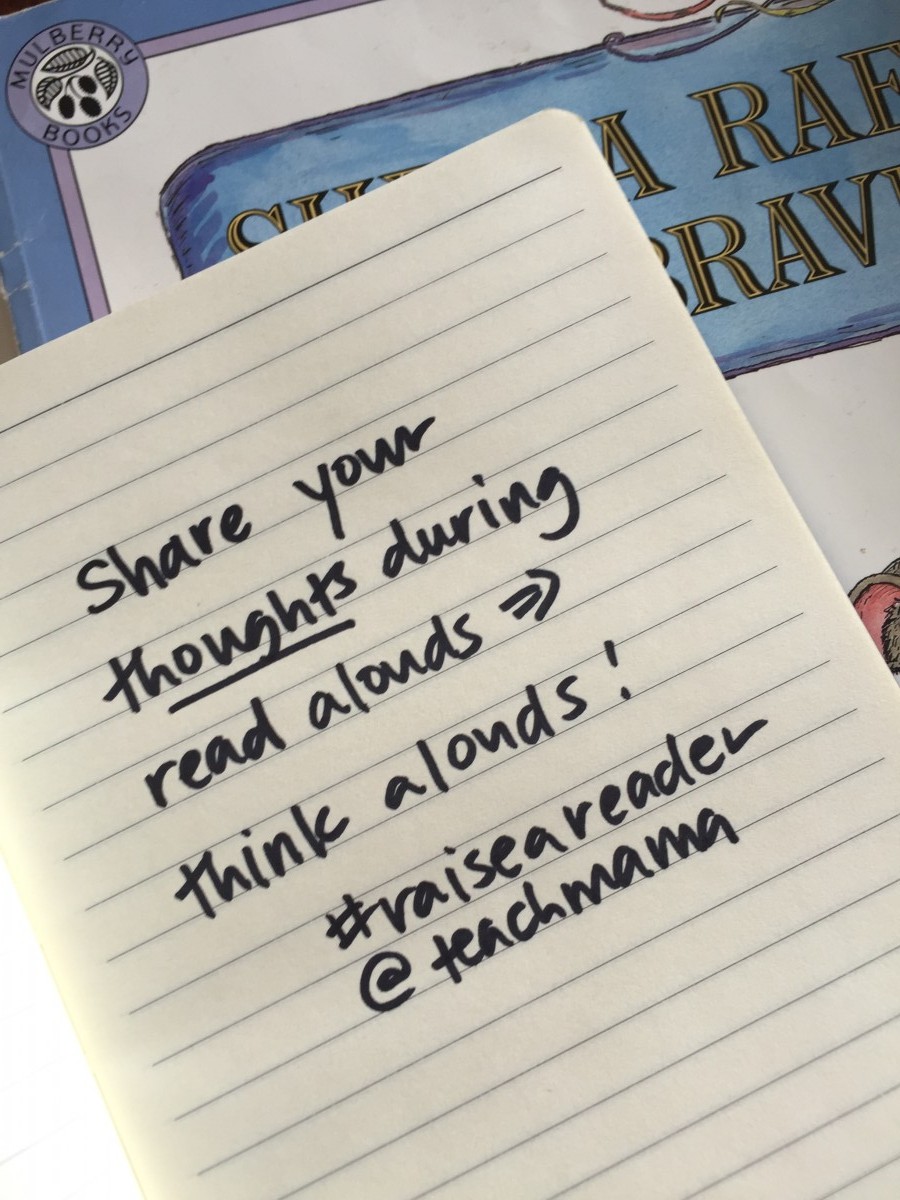 MULBERRY
BOOKS
A RAE
BRAV
Share your
thoughts during
read alouds ⇒
think alouds!
#raiseareader
@teachmama